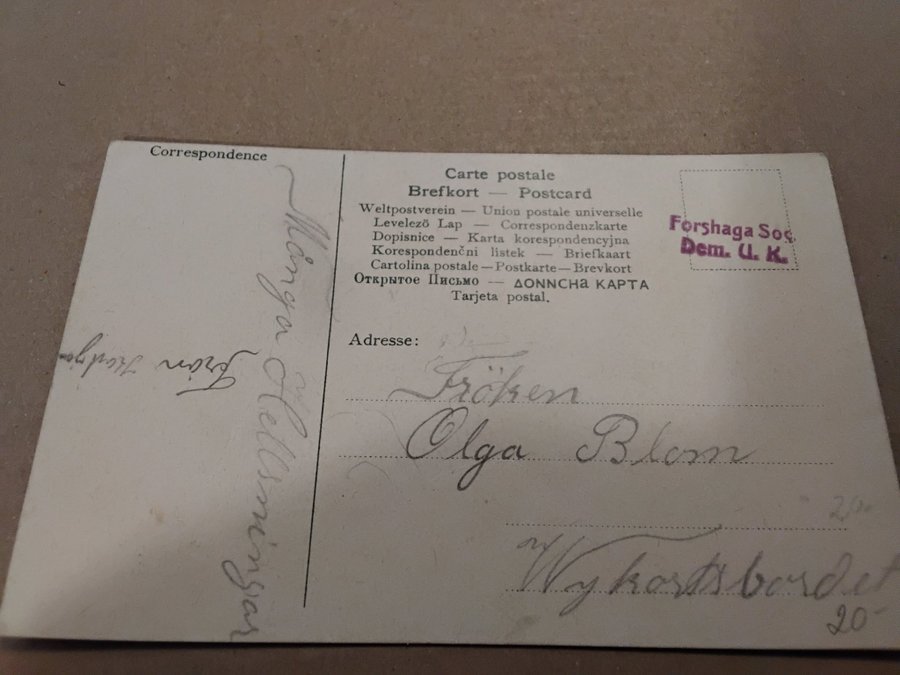 Correspondence
Många Helsningar
Från
Carte postale
Brefkort — Postcard
Weltpostverein — Union postale universelle
Levelező Lap — Correspondenzkarte
Dopisnice — Karta korespondencyjna
Korespondenční listek — Briefkaart
Cartolina postale — Postkarte — Brevkort
Открытое Письмо — ΔΟΝΝCHa ΚАРТА
Tarjeta postal.
Forshaga Soc.
Dem. U. K.
Adresse:
Fröken
Olga Blom
Wykortsbordet
20-